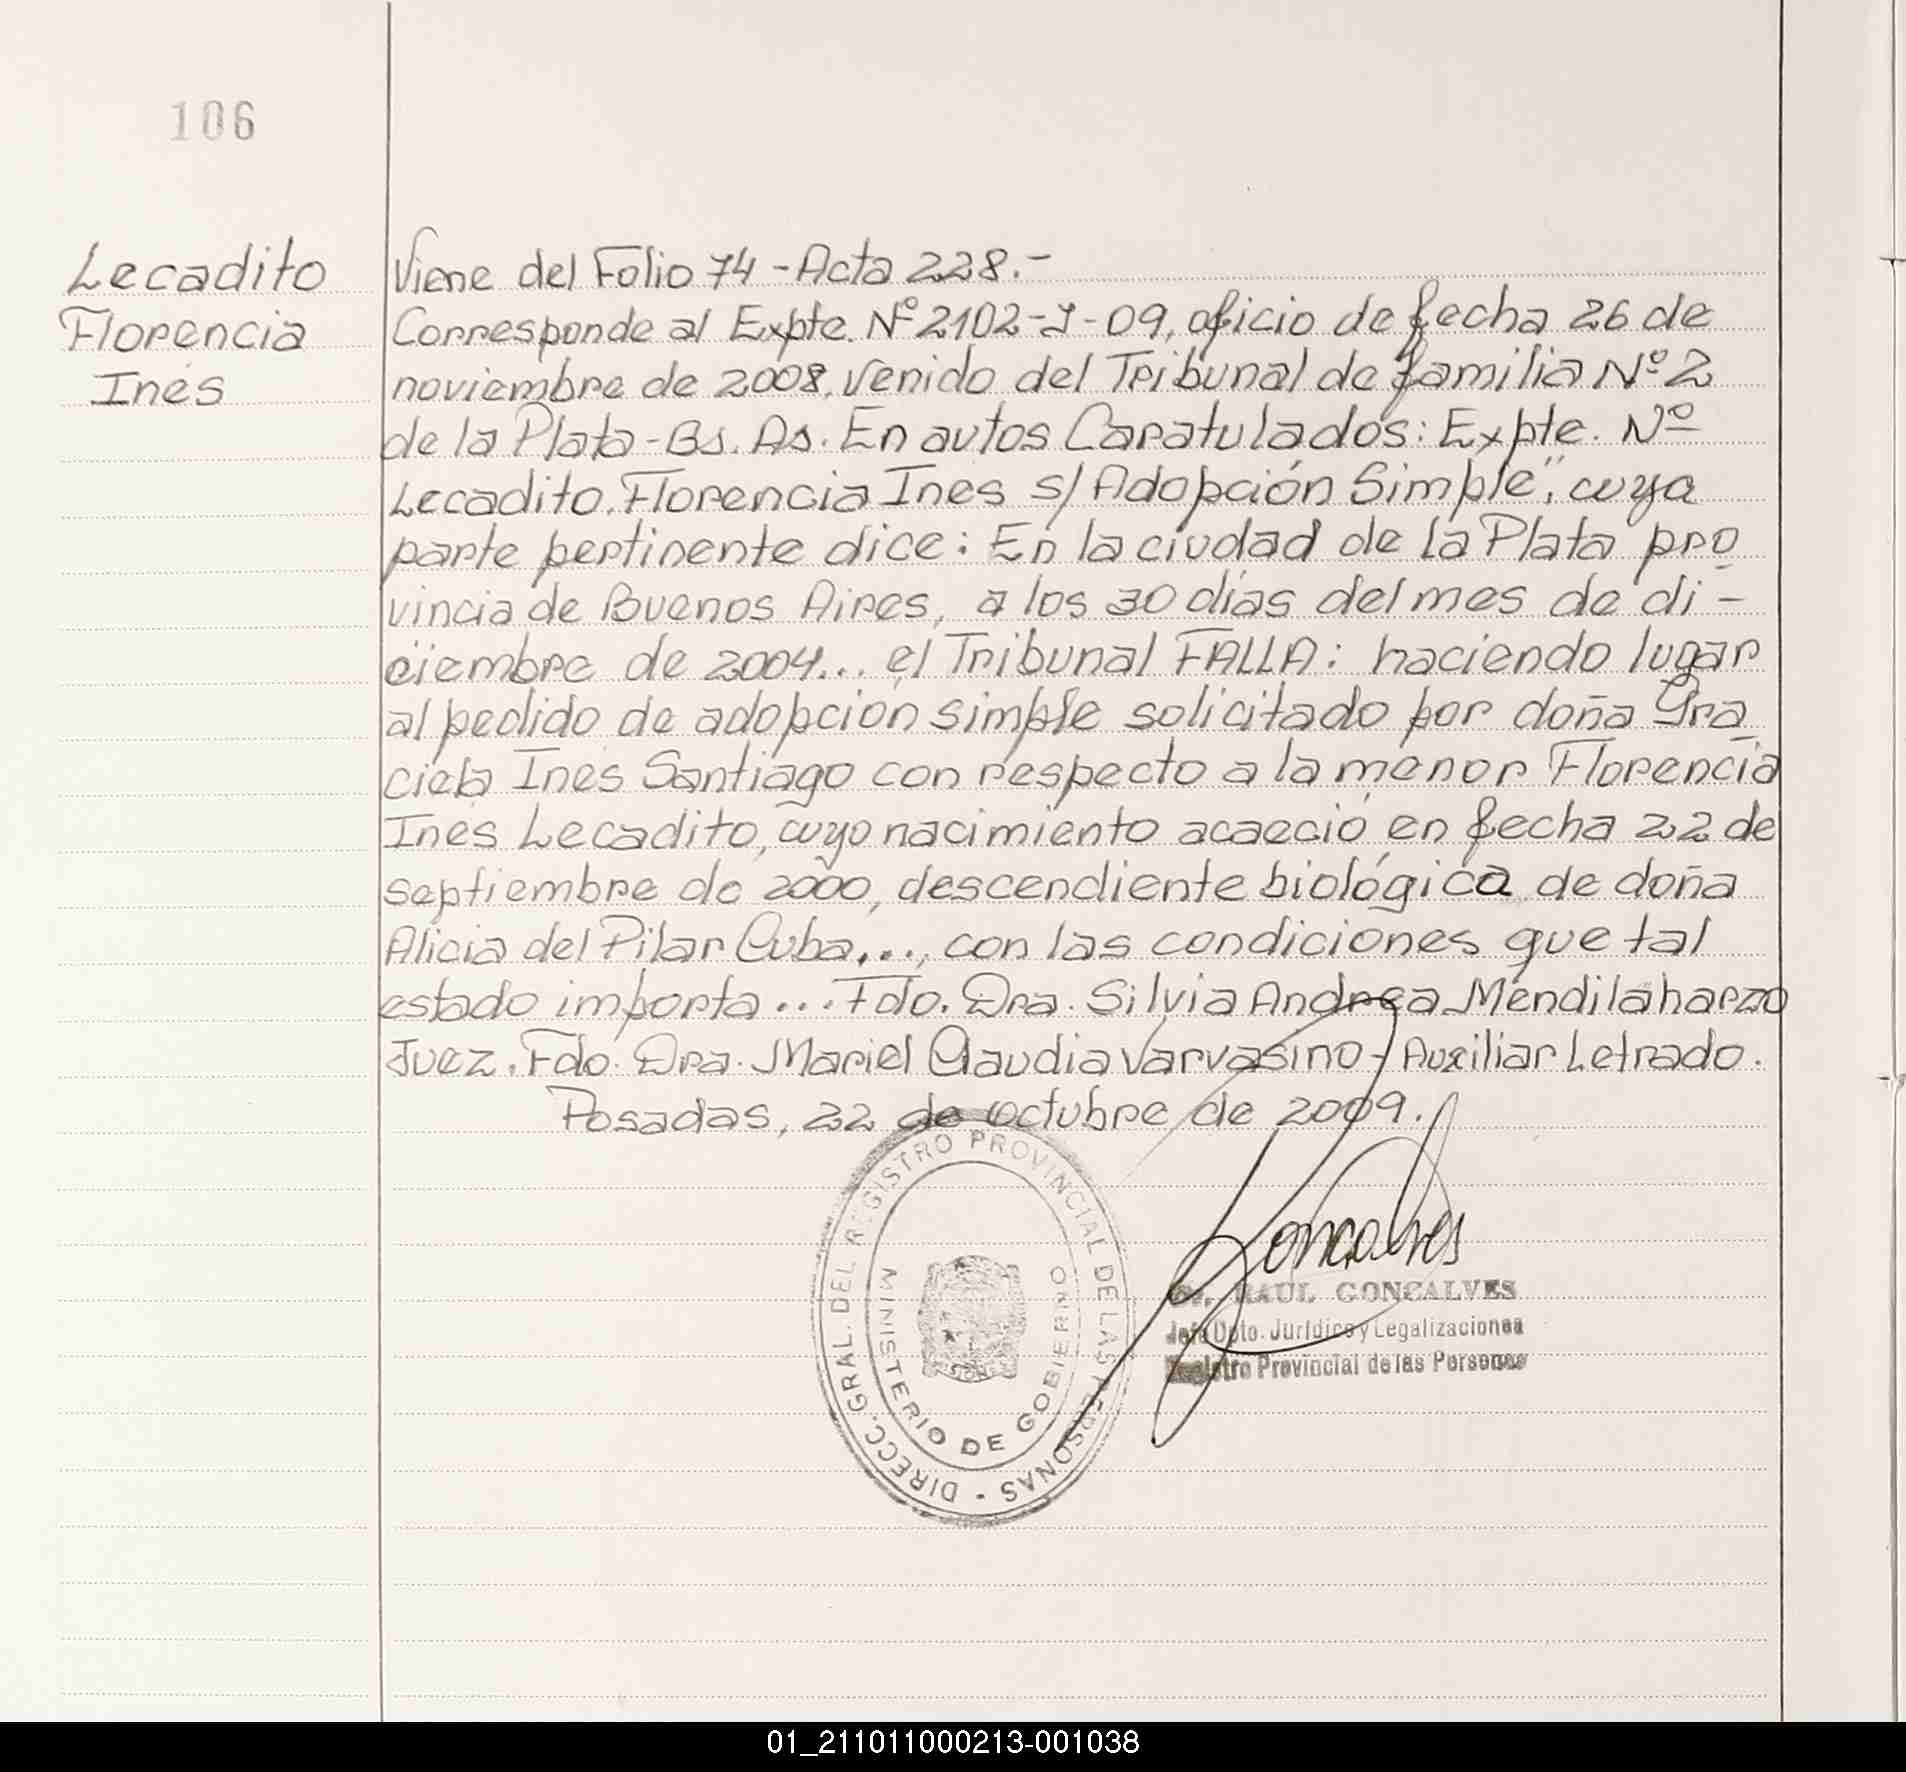 106
Lecadito
Florencia
Inés
Viene del Folio 74 - Acta 228.-
Corresponde al Expte. Nº 2102-J-09, oficio de fecha 26 de
noviembre de 2008, venido del Tribunal de familia Nº 2
de la Plata - Bs. As. En autos Caratulados: Expte. Nº
Lecadito. Florencia Ines s/ Adopción Simple", cuya
parte pertinente dice: En la ciudad de la Plata pro
vincia de Buenos Aires, a los 30 días del mes de di -
ciembre de 2004... el Tribunal FALLA: haciendo lugar
al pedido de adopción simple solicitado por doña Gra
ciela Ines Santiago con respecto a la menor Florencia
Inés Lecadito, cuyo nacimiento acaeció en fecha 22 de
septiembre de 2000, descendiente biológica de doña
Alicia del Pilar Cuba..., con las condiciones que tal
estado importa... Fdo. Dra. Silvia Andrea Mendilaharzo
Juez. Fdo. Dra. Mariel Claudia Varvasino - Auxiliar Letrado.
Posadas, 22 de octubre de 2009.
DIRECC. GRAL. DEL REGISTRO PROVINCIAL DE LAS PERSONAS -
MINISTERIO DE GOBIERNO
Goncalves
RAUL GONCALVES
Jefe Dpto. Jurídico y Legalizaciones
Registro Provincial de las Personas
01_211011000213-001038